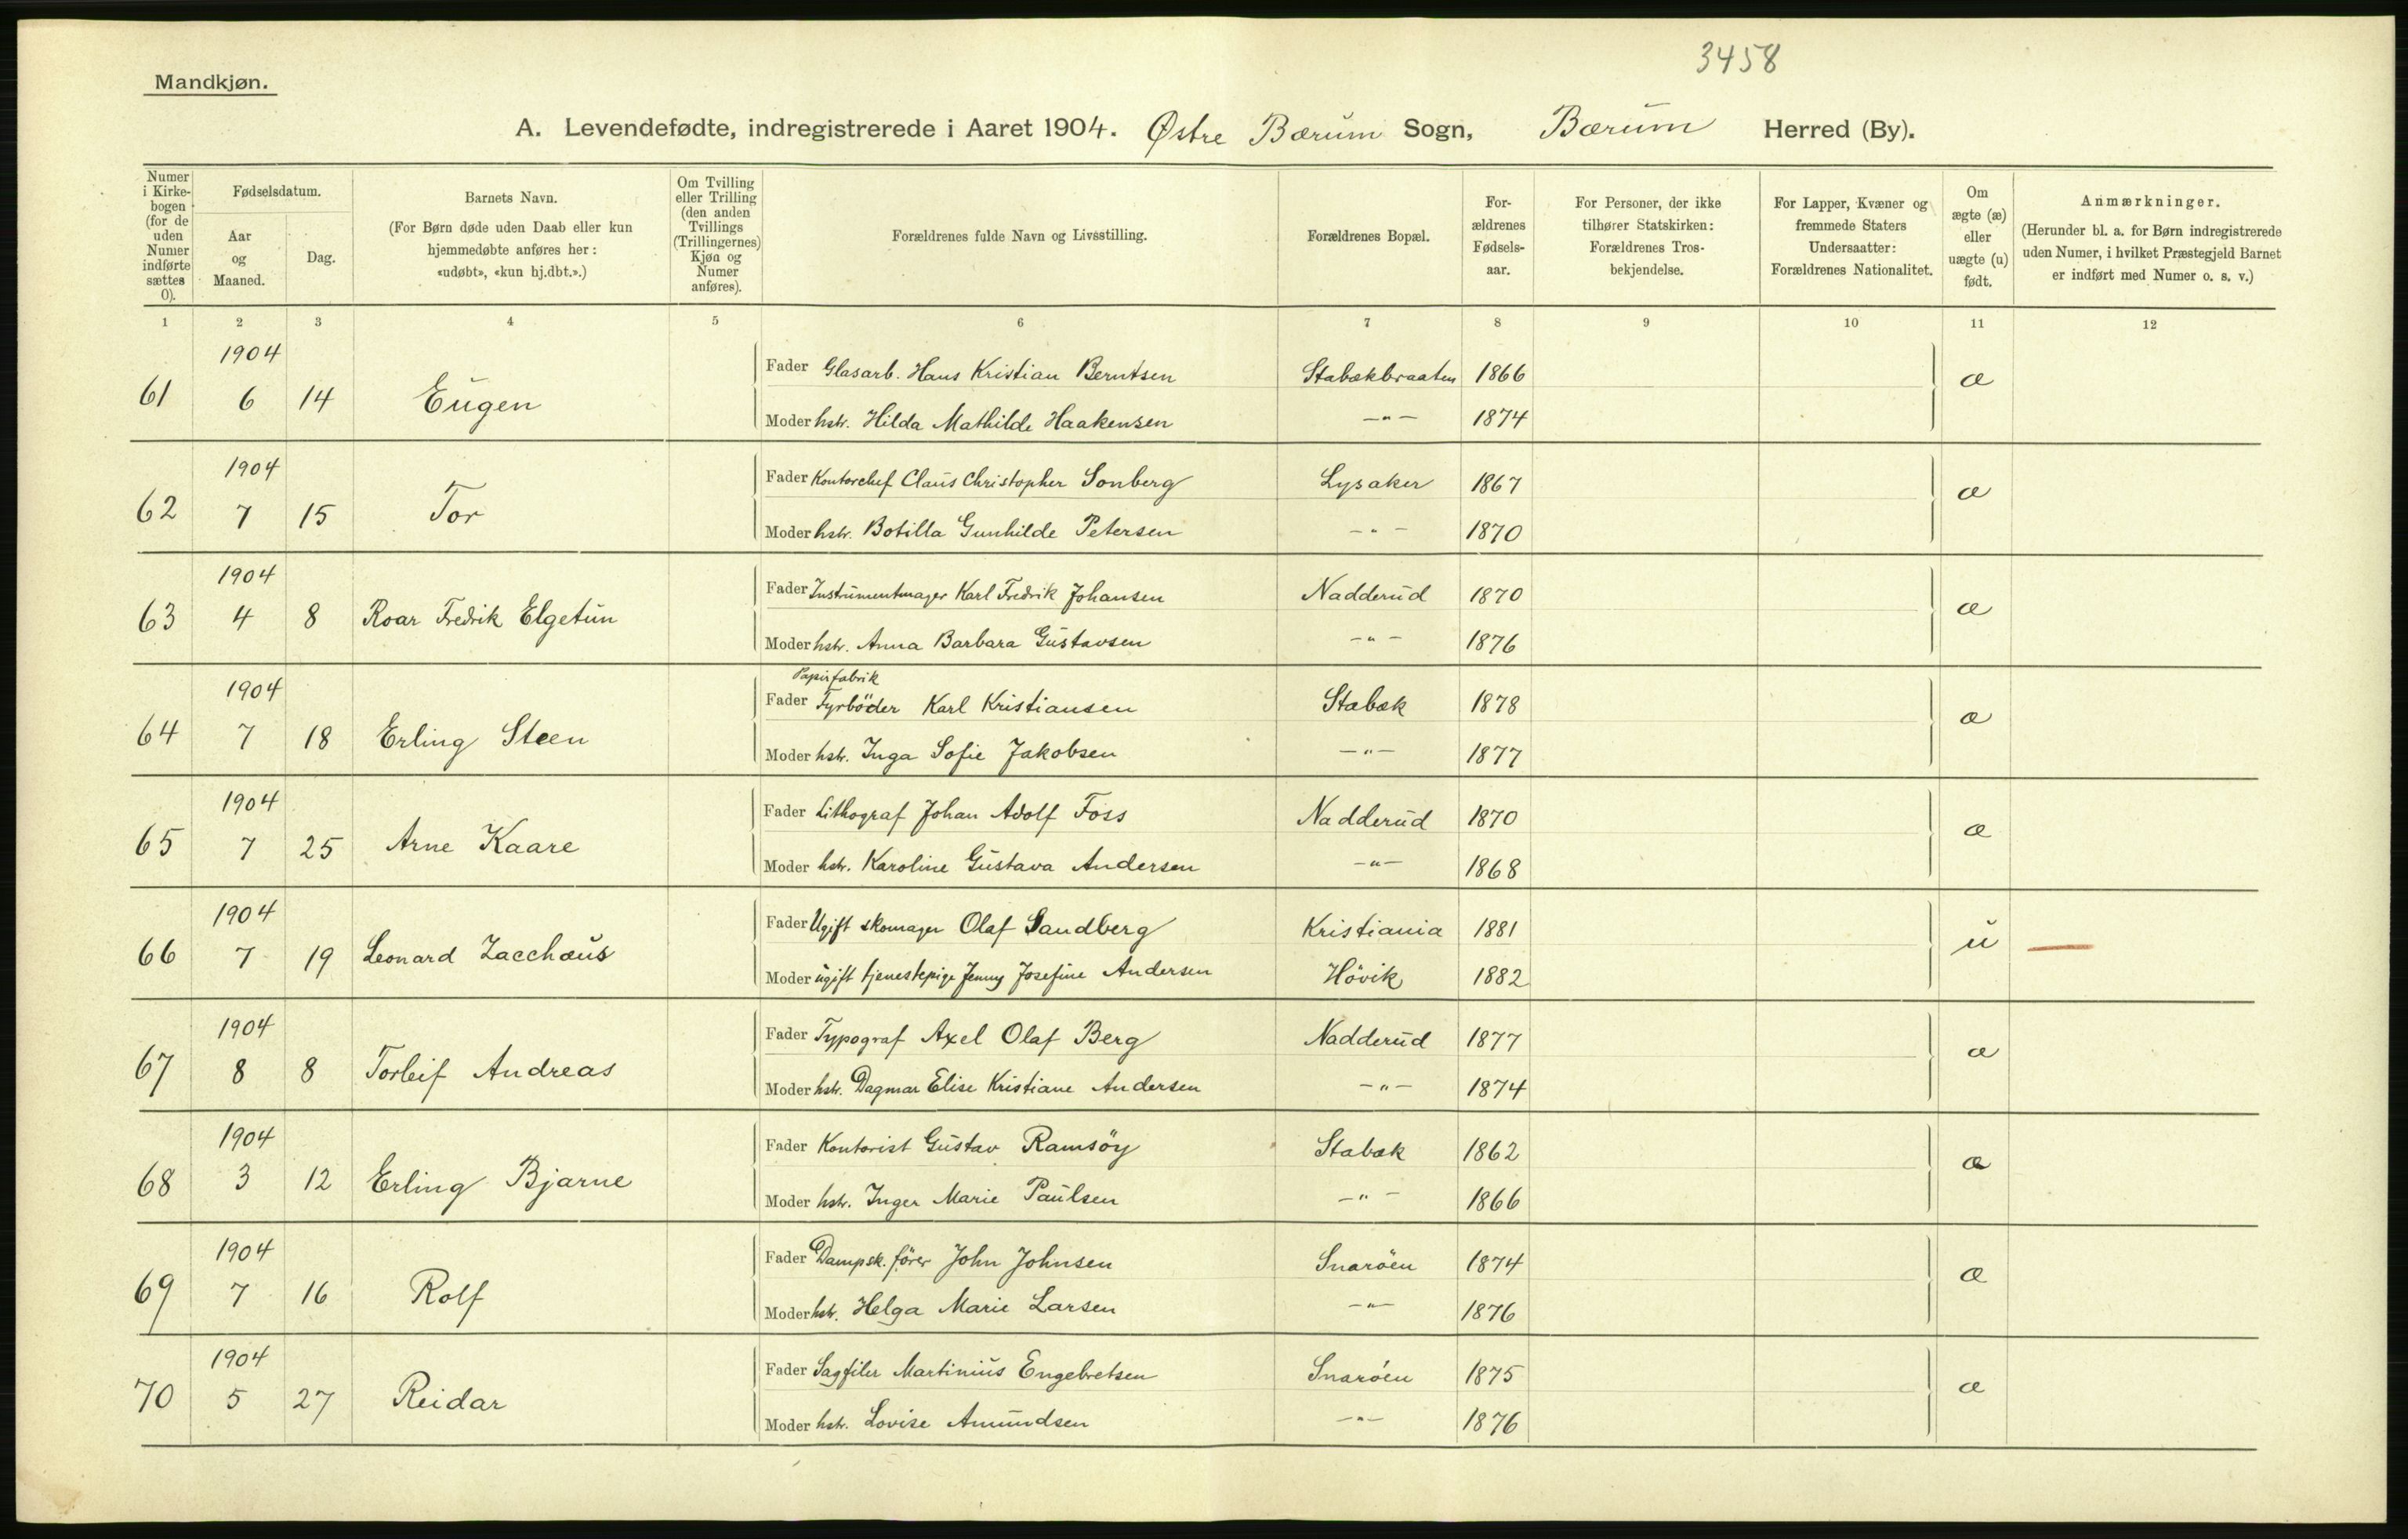 3458
Mandkjøn.
A. Levendefødte, indregistrerede i Aaret 1904. Østre Bærum Sogn, Bærum Herred (By).
Numer i Kirkebogen (for de uden Numer indførte sættes 0).
Fødselsdatum.
Aar og Maaned.
Dag.
Barnets Navn.
(For Børn døde uden Daab eller kun hjemmedøbte anføres her: «udøbt», «kun hj.dbt.».)
Om Tvilling eller Trilling (den anden Tvillings (Trillingernes) Kjøn og Numer anføres).
Forældrenes fulde Navn og Livsstilling.
Forældrenes Bopæl.
For-ældrenes Fødsels-aar.
For Personer, der ikke tilhører Statskirken: Forældrenes Tros-bekjendelse.
For Lapper, Kvæner og fremmede Staters Undersaatter: Forældrenes Nationalitet.
Om ægte (æ) eller uægte (u) født.
Anmærkninger.
(Herunder bl. a. for Børn indregistrerede uden Numer, i hvilket Præstegjeld Barnet er indført med Numer o. s. v.)
1 2 3 4 5 6 7 8 9 10 11 12
1904
61 6 14 Eugen Fader Glasarb. Hans Kristian Berntsen Stabækbraaten 1866 æ
Moder hstr. Hilda Mathilde Haakensen -"- 1874
1904
62 7 15 Tor Fader Kontorchef Claus Christopher Sonberg Lysaker 1867 æ
Moder hstr. Botilla Gunhilde Petersen -"- 1870
1904
63 4 8 Roar Fredrik Elgetun Fader Instrumentmager Karl Fredrik Johansen Nadderud 1870 æ
Moder hstr. Anna Barbara Gustavsen -"- 1876
1904 Papirfabrik
64 7 18 Erling Steen Fader Fyrböder Karl Kristiansen Stabæk 1878 æ
Moder hstr. Inga Sofie Jakobsen -"- 1877
1904
65 7 25 Arne Kaare Fader Lithograf Johan Adolf Foss Nadderud 1870 æ
Moder hstr. Karoline Gustava Andersen -"- 1868
1904
66 7 19 Leonard Zacchæus Fader Ugift skomager Olaf Sandberg Kristiania 1881 u —
Moder ugift tjenestepige Jenny Josefine Andersen Hövik 1882
1904
67 8 8 Torleif Andreas Fader Typograf Axel Olaf Berg Nadderud 1877 æ
Moder hstr. Dagmar Elise Kristiane Andersen -"- 1874
1904
68 3 12 Erling Bjarne Fader Kontorist Gustav Ramsöy Stabæk 1862 æ
Moder hstr. Inger Marie Paulsen -"- 1866
1904
69 7 16 Rolf Fader Dampsk. förer John Johnsen Snaröen 1874 æ
Moder hstr. Helga Marie Larsen -"- 1876
1904
70 5 27 Reidar Fader Sagfiler Martinius Engebretsen Snaröen 1875 æ
Moder hstr. Lovise Amundsen -"- 1876